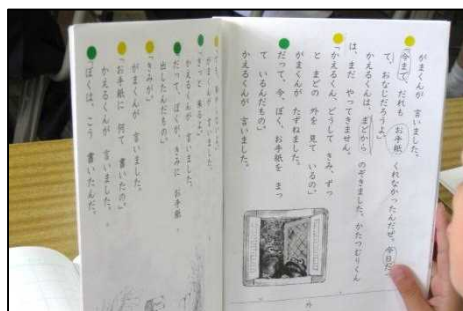 がまくんが 言いました。
「今まで だれも お手紙 くれなかったんだぜ。今日だっ
て、おなじだろうよ。」
かえるくんは、まどから のぞきました。かたつむりくん
は、まだ やってきません。
「かえるくん、どうして きみ、ずっ
と まどの 外を 見て いるの。」
がまくんが たずねました。
「だって、今、ぼく、お手紙を まっ
て いるんだもの。」
かえるくんが 言いました。
「きっと 来るよ。」
かえるくんが 言いました。
「だって、ぼくが、きみに お手紙
出したんだもの。」
「きみが。」
がまくんが 言いました。
「お手紙に 何て 書いたの。」
かえるくんが 言いました。
「ぼくは、こう 書いたんだ。